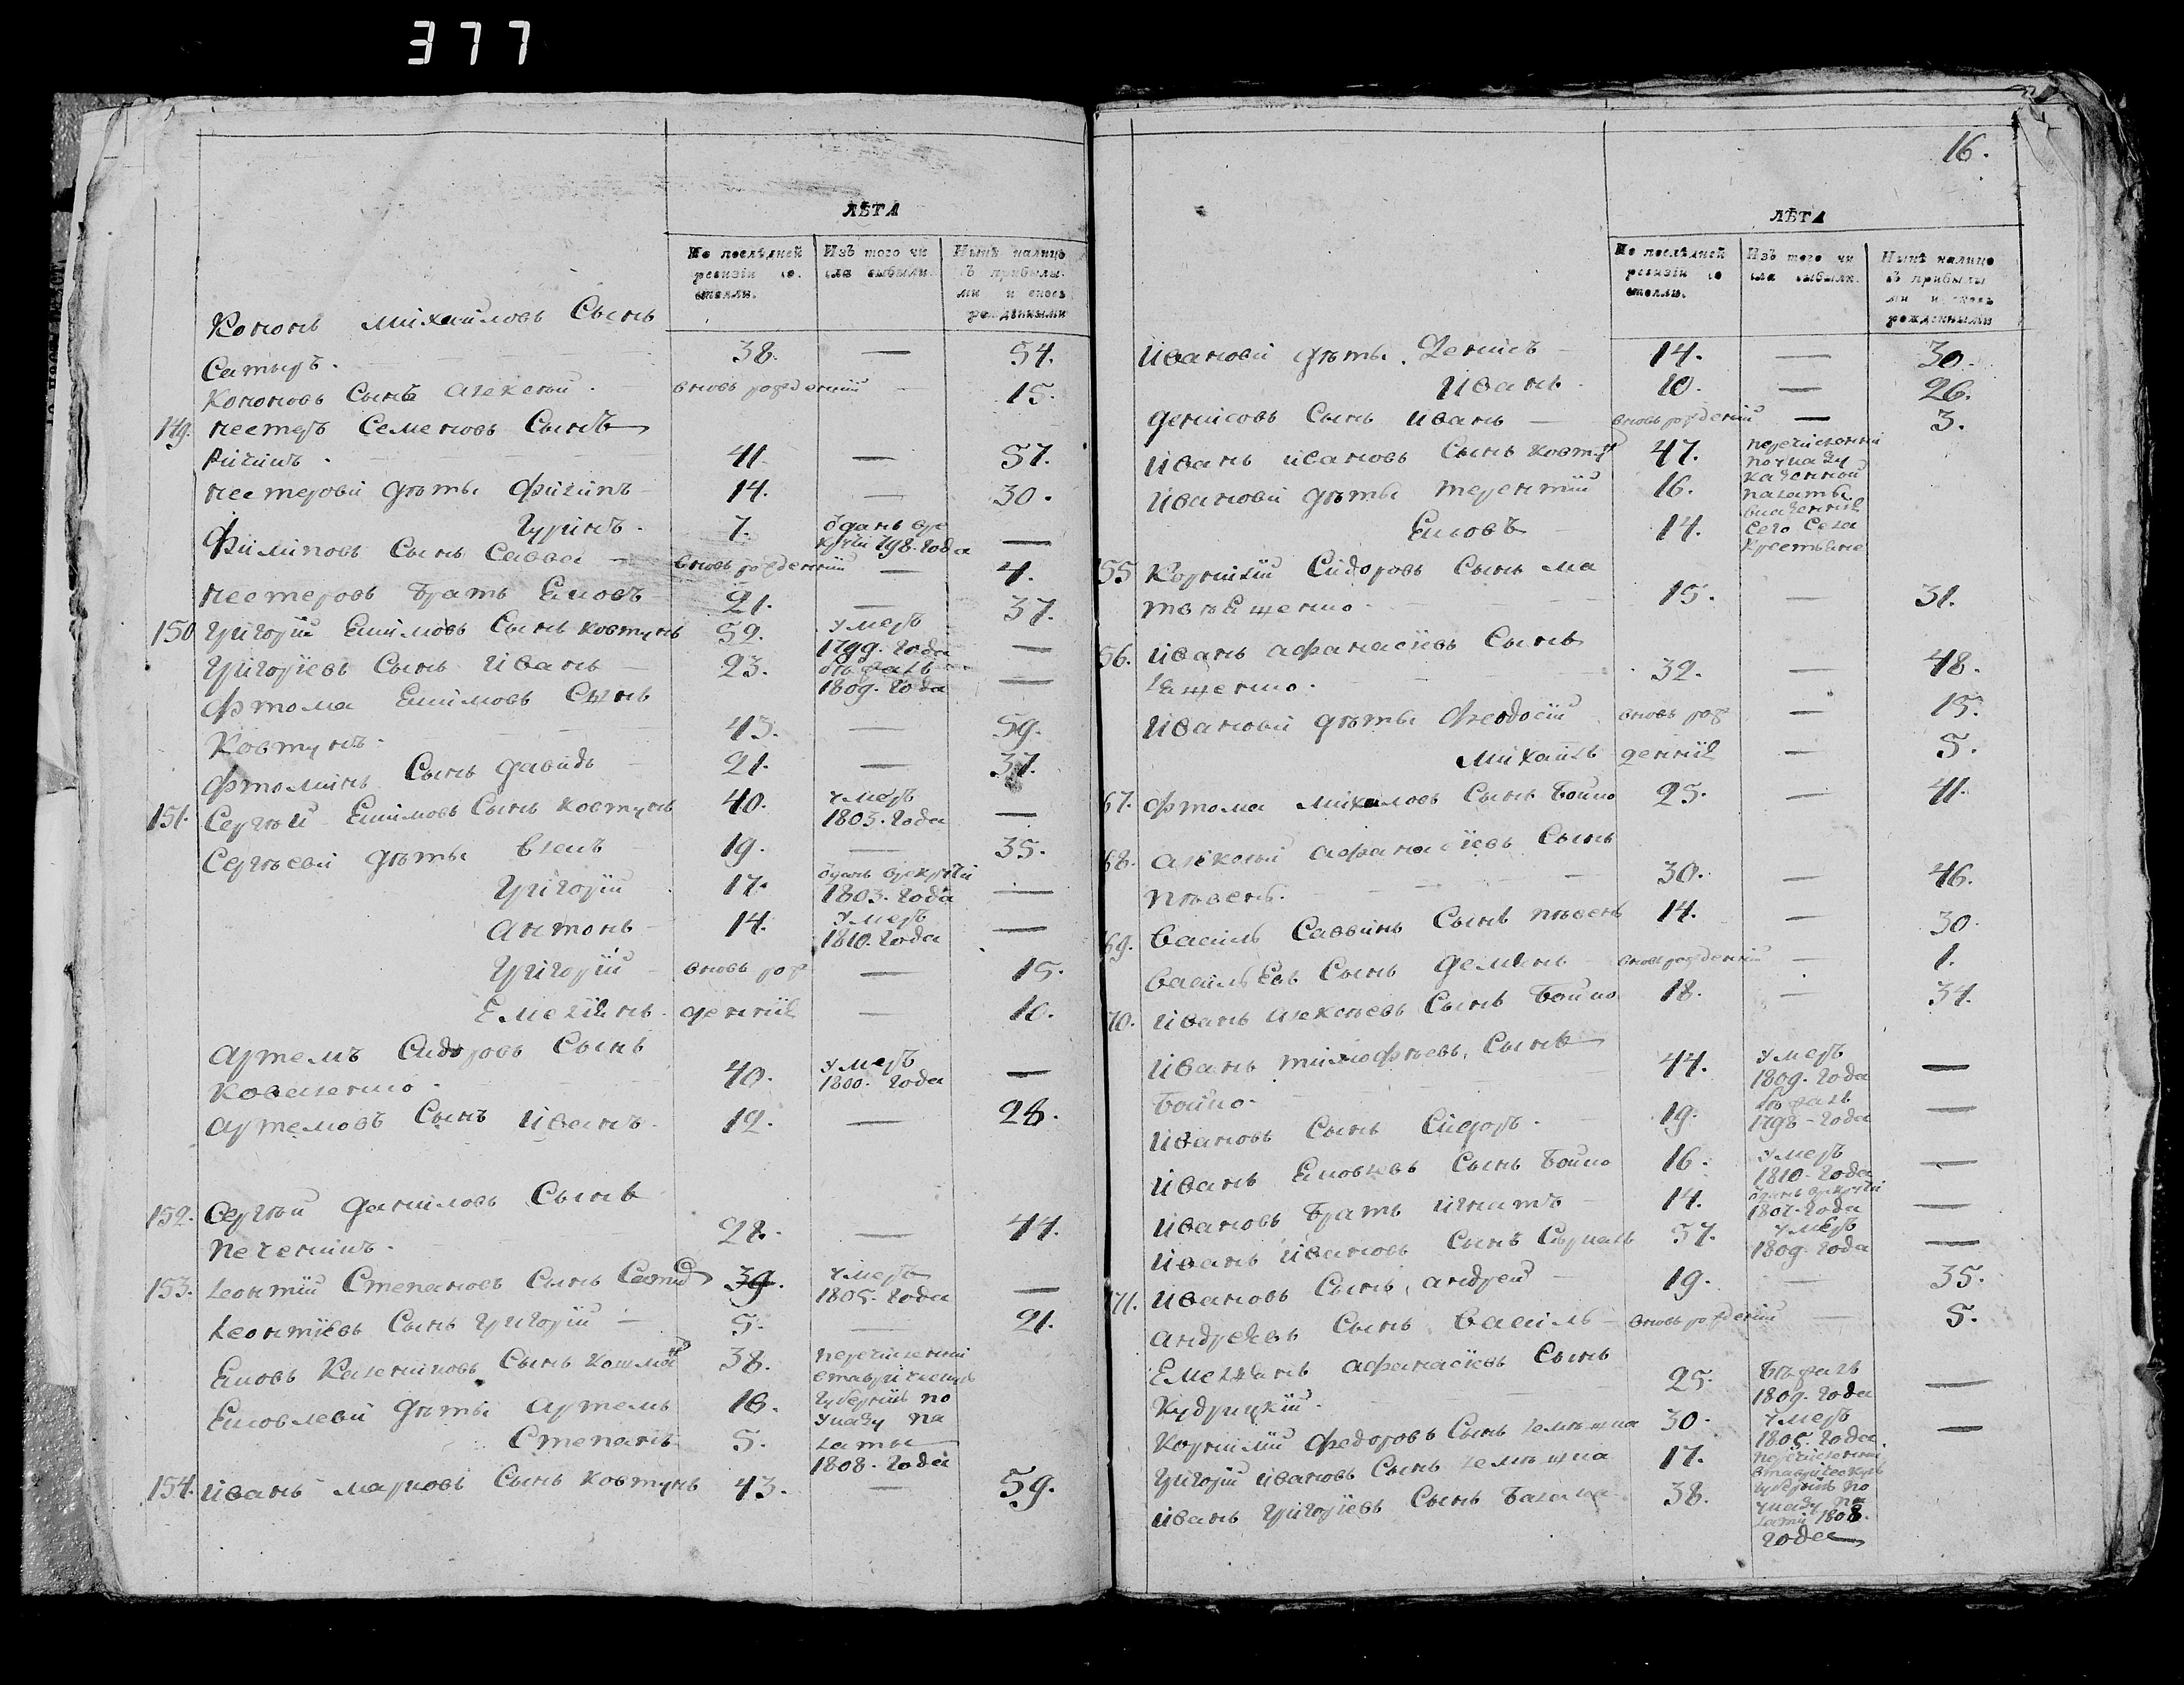 377
ЛѢТА
По послѣдней ревизіи состояли.
Изъ того числа выбыли.
Нынѣ налицо съ прибылыми и вновь рожденными
Кононъ Михайловъ Сынъ
Сатыръ. 38. — 54.
Кононовъ Сынъ Алексѣй. вновь рожденній — 15.
149. Нестеръ Семеновъ Сынъ
41. — 57.
Нестеровы дѣты Филипъ 14. — 30.
7. Отданъ вре
круты 798. года —
Филиповъ Сынъ Савва — вновь рожденній — 4.
Нестеровъ братъ Яковъ 21. — 37.
150 Григорій Якимовъ Сынъ Ковтунъ 59. умеръ
1799. года —
Григоріевъ Сынъ Иванъ — 23.
1809. года —
Фтома Якимовъ Сынъ
Ковтунъ. 43. — 59.
Фтоминъ Сынъ Давидъ 21. — 37.
151. Сергѣй Якимовъ Сынъ Ковтунъ 40. умеръ
1803. года —
Сергѣевы дѣты Власъ 19. — 35.
Григорій 17. Отданъ врекруты
1803. года —
Антонъ 14. умеръ
1810. года —
Григорій вновь рож — 15.
Емелянъ. денніе — 10.
Артемъ Сидоровъ Сынъ
Коваленко. 40. умеръ
1800. года —
Артемовъ Сынъ Иванъ. 12. — 28.
152. Сергѣй Даниловъ Сынъ
28. — 44.
153. Леонтій Степановъ Сынъ 39. умеръ
1805. года —
Леонтіевъ Сынъ Григорій — 5. — 21.
Яковъ Сынъ 38. перечисленны
втаврическую
Яковлевы дѣты Артемъ 16. губернію по
указу па
Степанъ 5. латы
1808. года
154. Иванъ Марковъ Сынъ Ковтунъ 43. — 59.
16.
ЛѢТА
По послѣдней ревизіи состояли.
Изъ того числа выбыли.
Нынѣ налицо съ прибылыми и вновь рожденными
Ивановы дѣты. Денисъ 14. — 30.
Иванъ. 10. — 26.
Денисовъ Сынъ Иванъ — вновь рожденній — 3.
Иванъ Ивановъ Сынъ Ковту 47. перечисленны
по указу
Ивановы дѣты Терентій 16. казенной
палаты
Яковъ 14.
сего села
крестьяне
55 Корнилій Сидоровъ Сынъ Ма
15. — 31.
56. Иванъ Афанасіевъ Сынъ
Ященко. 32. — 48.
Ивановы дѣты Феодосій вновь рож — 15.
Михаилъ денніе — 5.
67. Фтома Михаловъ Сынъ Бойко 25. — 41.
68. Алексѣй Афанасіевъ Сынъ
Пѣвень. 30. — 46.
69. Василь Саввинъ Сынъ Пѣвень 14. — 30.
Васильевъ Сынъ Демянъ — вновь рожденній — 1.
70. Иванъ Алексѣевъ Сынъ Бойко 18. — 34.
Иванъ Тимофѣевъ Сынъ
Бойко. 44. умеръ
1809. года —
Ивановъ Сынъ Сидоръ. 19. бѣжалъ
1798 года —
Иванъ Яковлевъ Сынъ Бойко 16. умеръ
1810. года —
Ивановъ братъ Игнатъ 14. Отданъ врекруты
1807. года —
Иванъ Ивановъ Сынъ 57. умеръ
1809. года —
71. Ивановъ Сынъ Андрей — 19. — 35.
Андреевъ Сынъ Василь — вновь рожденній — 5.
Емелянъ Афанасіевъ Сынъ
Кудрицкій. 25. бѣжалъ
1809. года —
Корнилій Федоровъ Сынъ 30. умеръ
1805. года. —
Григорій Ивановъ Сынъ 17. перечисленны
втаврическую
Иванъ Григоріевъ Сынъ 38. губернію по
указу па
латы 1808.
года